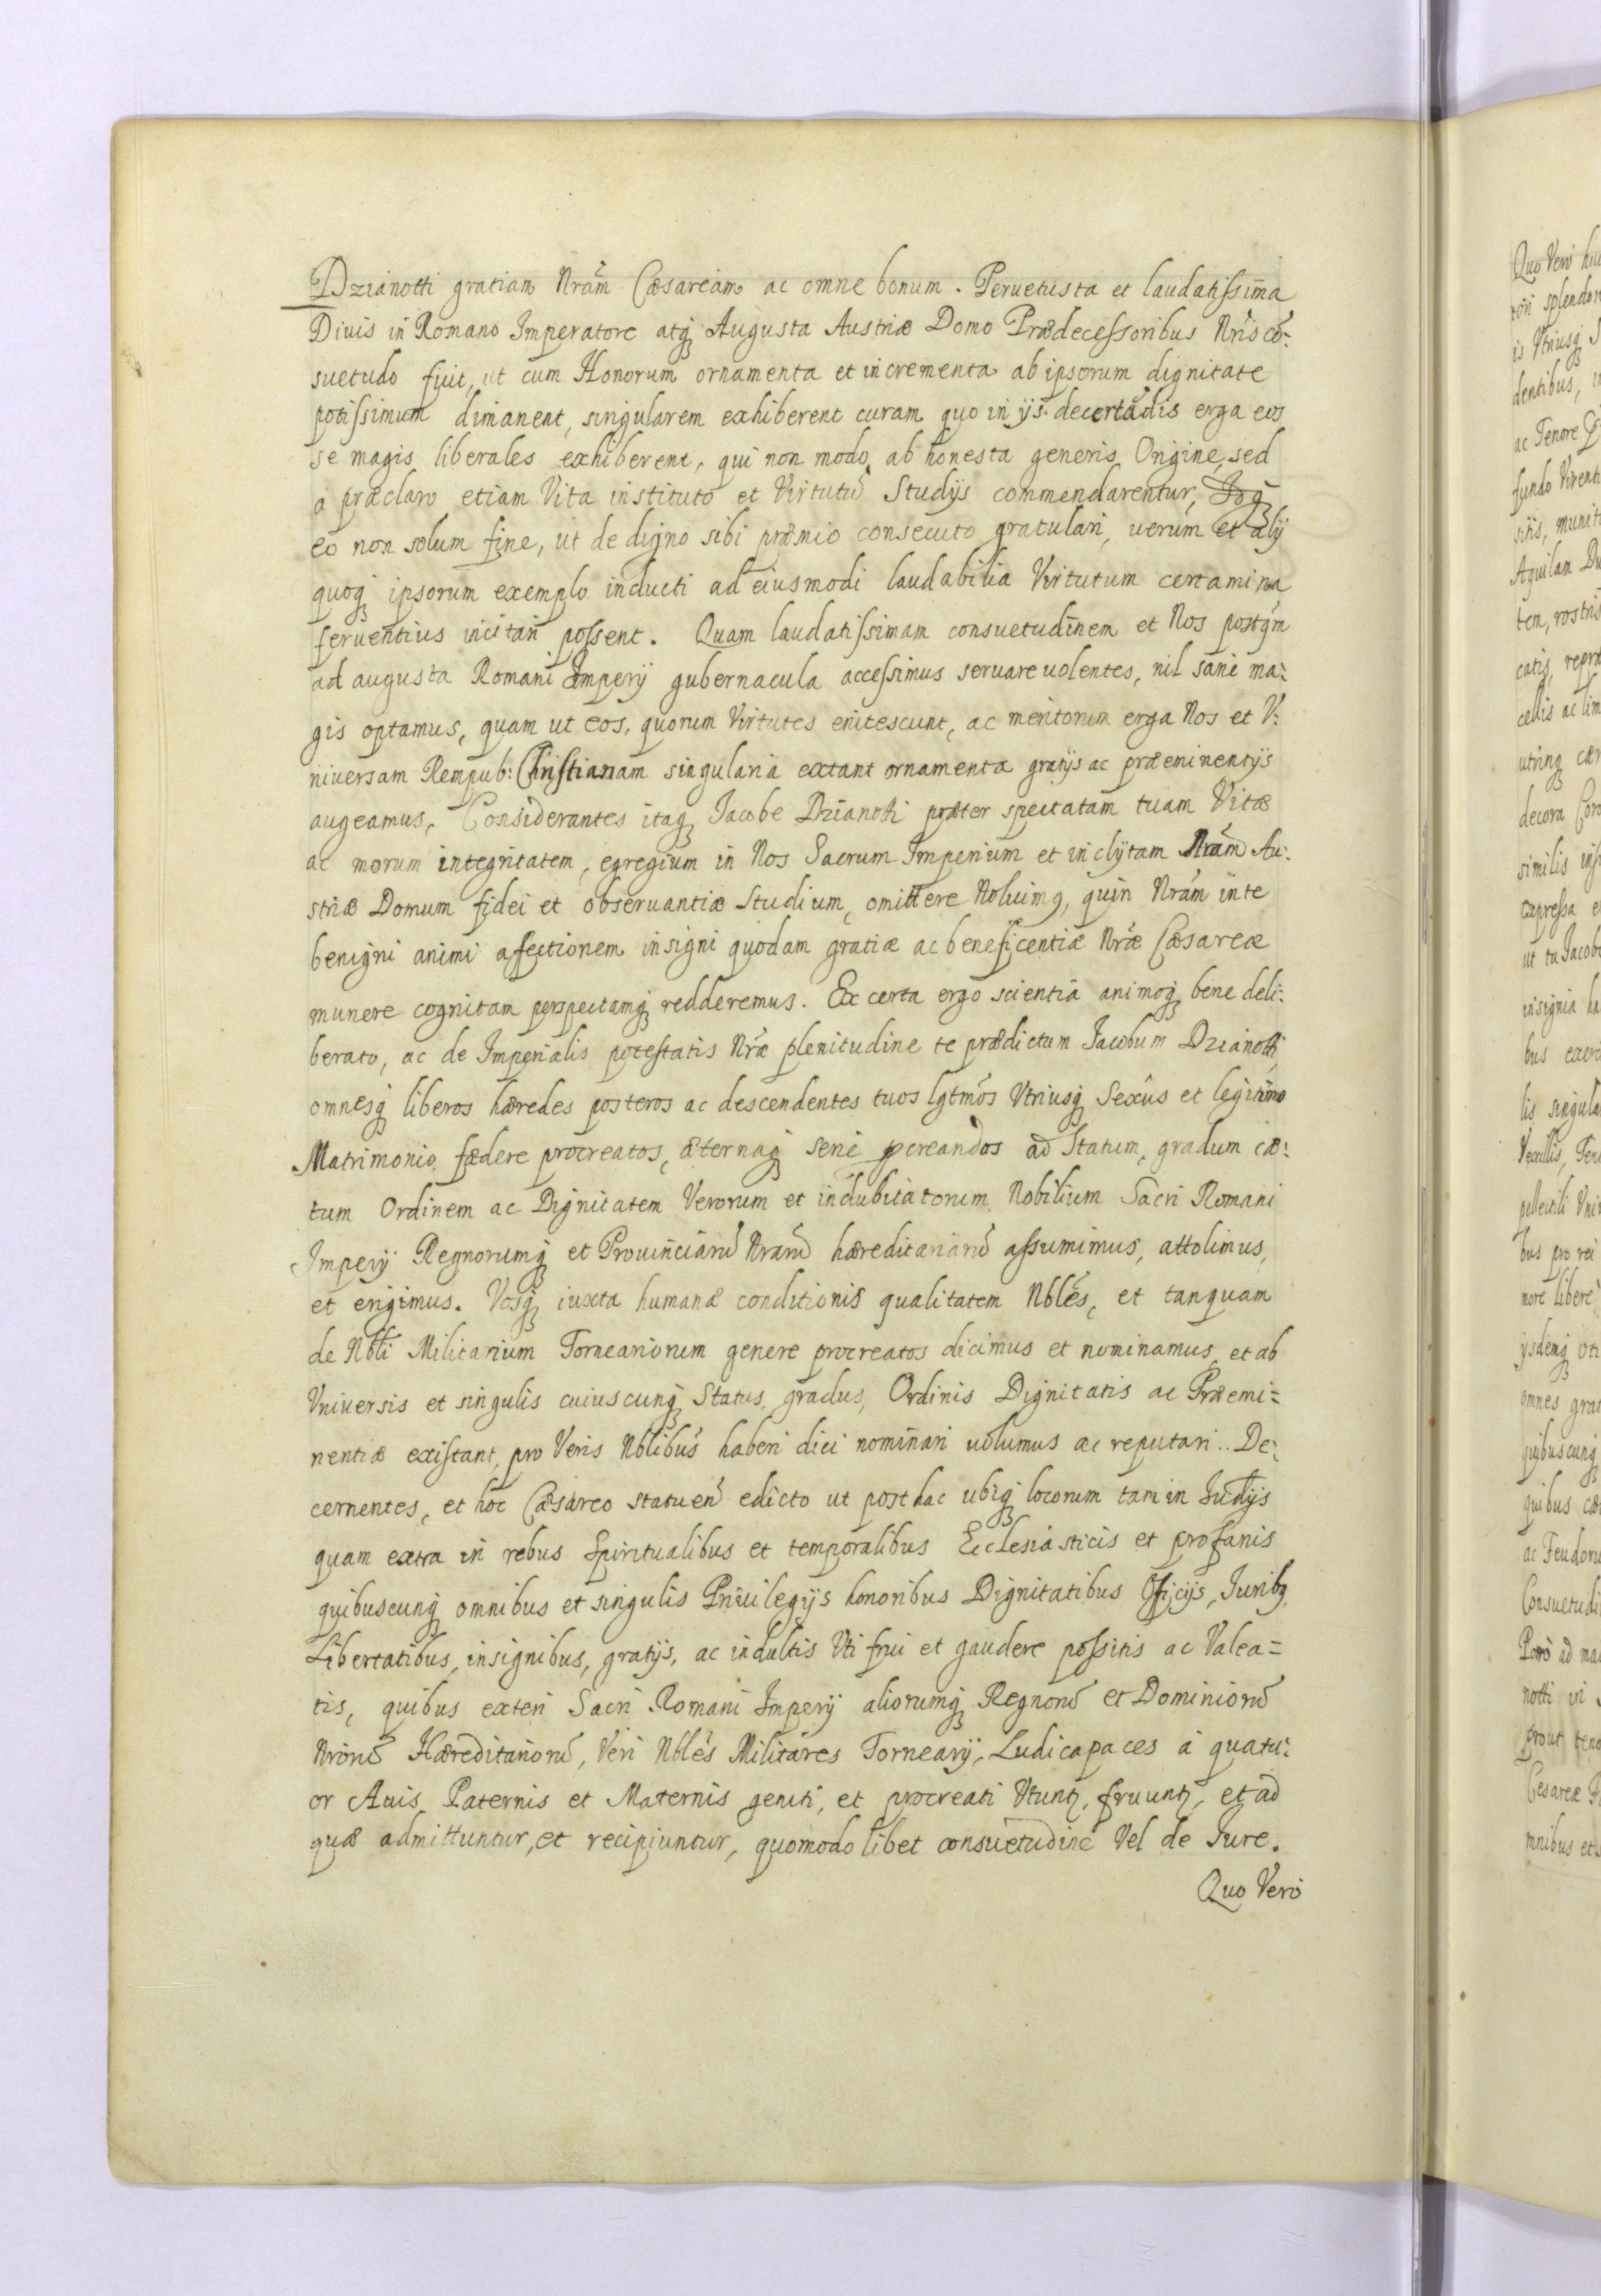 Dzianotti gratiam Nrãm Cæsaream ac omne bonum. Peruetusta et laudatissima
Diuis in Romano Imperatore atq́ Augusta Austriæ Domo Prædecessoribus Nris cõ:
suetudo fuit, ut cum Honorum ornamenta et incrementa ab ipsorum dignitate
potissimum dimanent, singularem exhiberent curam quo in ijs decertãdis erga eos
se magis liberales exhiberent, qui non modo ab honesta generis Origine, sed
à præclaro etiam Vita instituto et Virtutũ Studijs commendarentur,
eo non solum fine, ut de digno sibi præmio consecuto gratulari, uerum et alij
quoq́ ipsorum exemplo inducti ad eiusmodi laudabilia Virtutum certamina
feruentius incitari possent. Quam laudatissimam consuetudinem et Nos postq́m
ad augusta Romani Imperij gubernacula accessimus seruare uolentes, nil sane ma:
gis optamus, quam ut eos, quorum Virtutes enitescunt, ac meritorum erga Nos et V:
niuersam Rempub: Christianam singularia extant ornamenta gratijs ac præeminentijs
augeamus. Considerantes itaq́ Jacobe Dzianotti præter spectatam tuam Vitæ
ac morum integritatem, egregium in Nos Sacrum Imperium et inclytam Nrãm Au:
striæ Domum fidei et obseruantiæ Studium, omittere Noluimq, quin Nrãm in te
benigni animi affectionem insigni quodam gratiæ ac beneficentiæ Nræ Cæsareæ
munere cognitam perspectamq́ redderemus. Ex certa ergo scientia animoq́ bene deli:
berato, ac de Imperialis potestatis Nræ plenitudine te prædictum Jacobum Dzianotti,
omnesq́ liberos hæredes posteros ac descendentes tuos lgtmõs Vtriusq́ Sexûs et legitimo
Matrimonio fædere procreatos, æternaq́ serie pcreandos ad Statum, gradum cæ:
tum Ordinem ac Dignitatem Verorum et indubitatorum Nobilium Sacri Romani
Imperij Regnorumq́ et Prouinciarũ Nrarũ hæreditariarũ assumimus, attolimus,
et erigimus. Vosq́ iuxta humanæ conditionis qualitatem Nblẽs, et tanquam
de Nbli Militarium Torneariorum genere procreatos dicimus et nominamus, et ab
Vniuersis et singulis cuiuscunq́ Status, gradus, Ordinis Dignitatis ac Præemi=
nentiæ existant, pro Veris Nblibus haberi dici nominari uolumus ac reputari. De:
cernentes, et hoc Cæsareo statuen̄ edicto ut posthac ubiq́ locorum tam in Judijs
quam extra in rebus Spiritualibus et temporalibus Ecclesiasticis et profanis
quibuscunq́ omnibus et singulis Priuilegijs honoribus Dignitatibus Officijs, Juribq,
Libertatibus, insignibus, gratijs, ac indultis Vti frui et gaudere possitis ac Valea=
tis, quibus exteri Sacri Romani Imperij aliorumq́ Regnorũ et Dominiorũ
Nrorũ Hæreditariorũ, Veri Nblẽs Militares Tornearij, Ludicapaces à quatu:
or Auis Paternis et Maternis geniti, et procreati Vtuntʒ, fruuntʒ, et ad
quæ admittuntur, et recipiuntur, quomodolibet consuetudine Vel de Jure.
Quo Verò